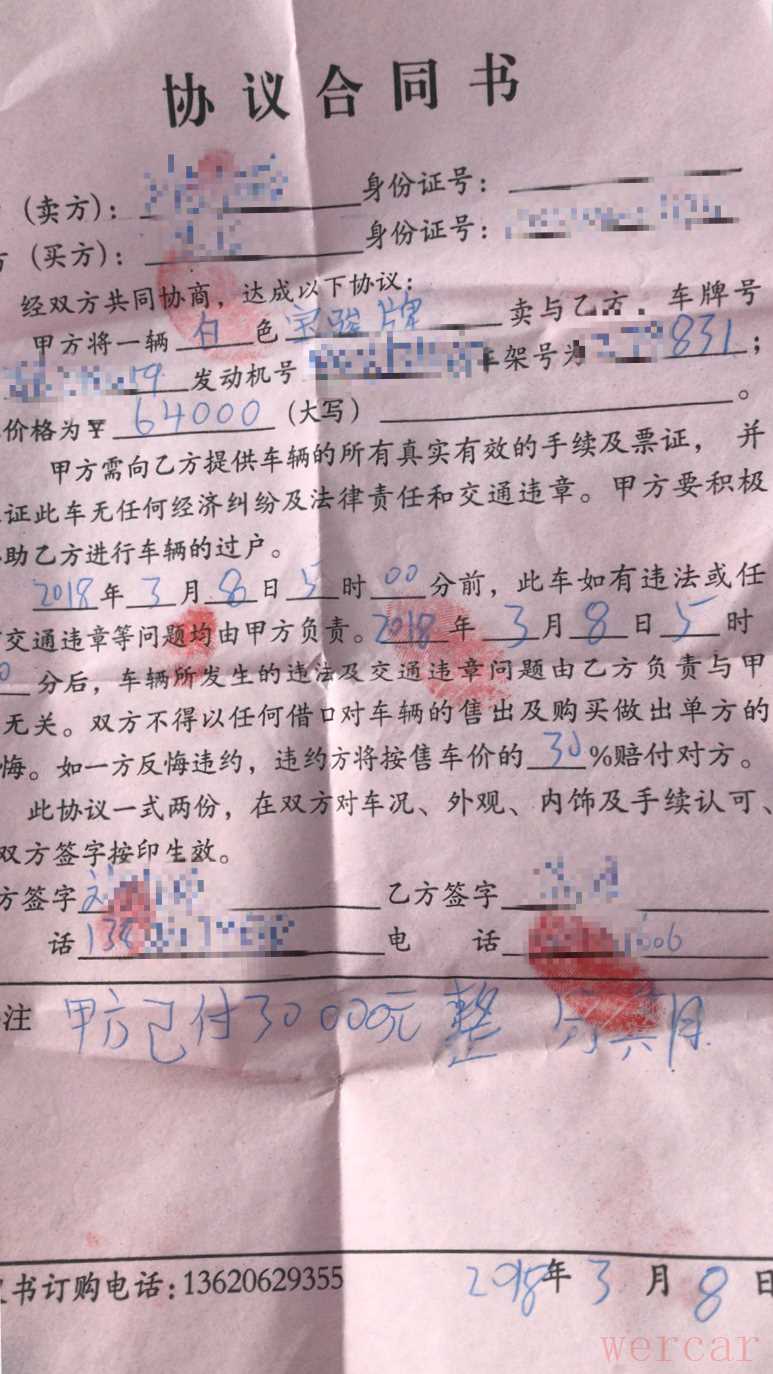 协议合同书
（卖方）： 身份证号：
方（买方）： 身份证号：
经双方共同协商，达成以下协议：
甲方将一辆 白 色 宝骏牌 卖与乙方，车牌号
59 发动机号 车架号为 831；
价格为￥ 64000 （大写） 。
甲方需向乙方提供车辆的所有真实有效的手续及票证， 并
证此车无任何经济纠纷及法律责任和交通违章。甲方要积极
助乙方进行车辆的过户。
2018 年 3 月 8 日 5 时 00 分前，此车如有违法或任
交通违章等问题均由甲方负责。2018 年 3 月 8 日 5 时
0 分后，车辆所发生的违法及交通违章问题由乙方负责与甲
无关。双方不得以任何借口对车辆的售出及购买做出单方的
悔。如一方反悔违约，违约方将按售车价的 30 %赔付对方。
此协议一式两份，在双方对车况、外观、内饰及手续认可、
双方签字按印生效。
方签字 乙方签字
话 13 电 话 606
注 甲方已付30000元整 月
书订购电话：13620629355 2018年 3 月 8 日
wercar